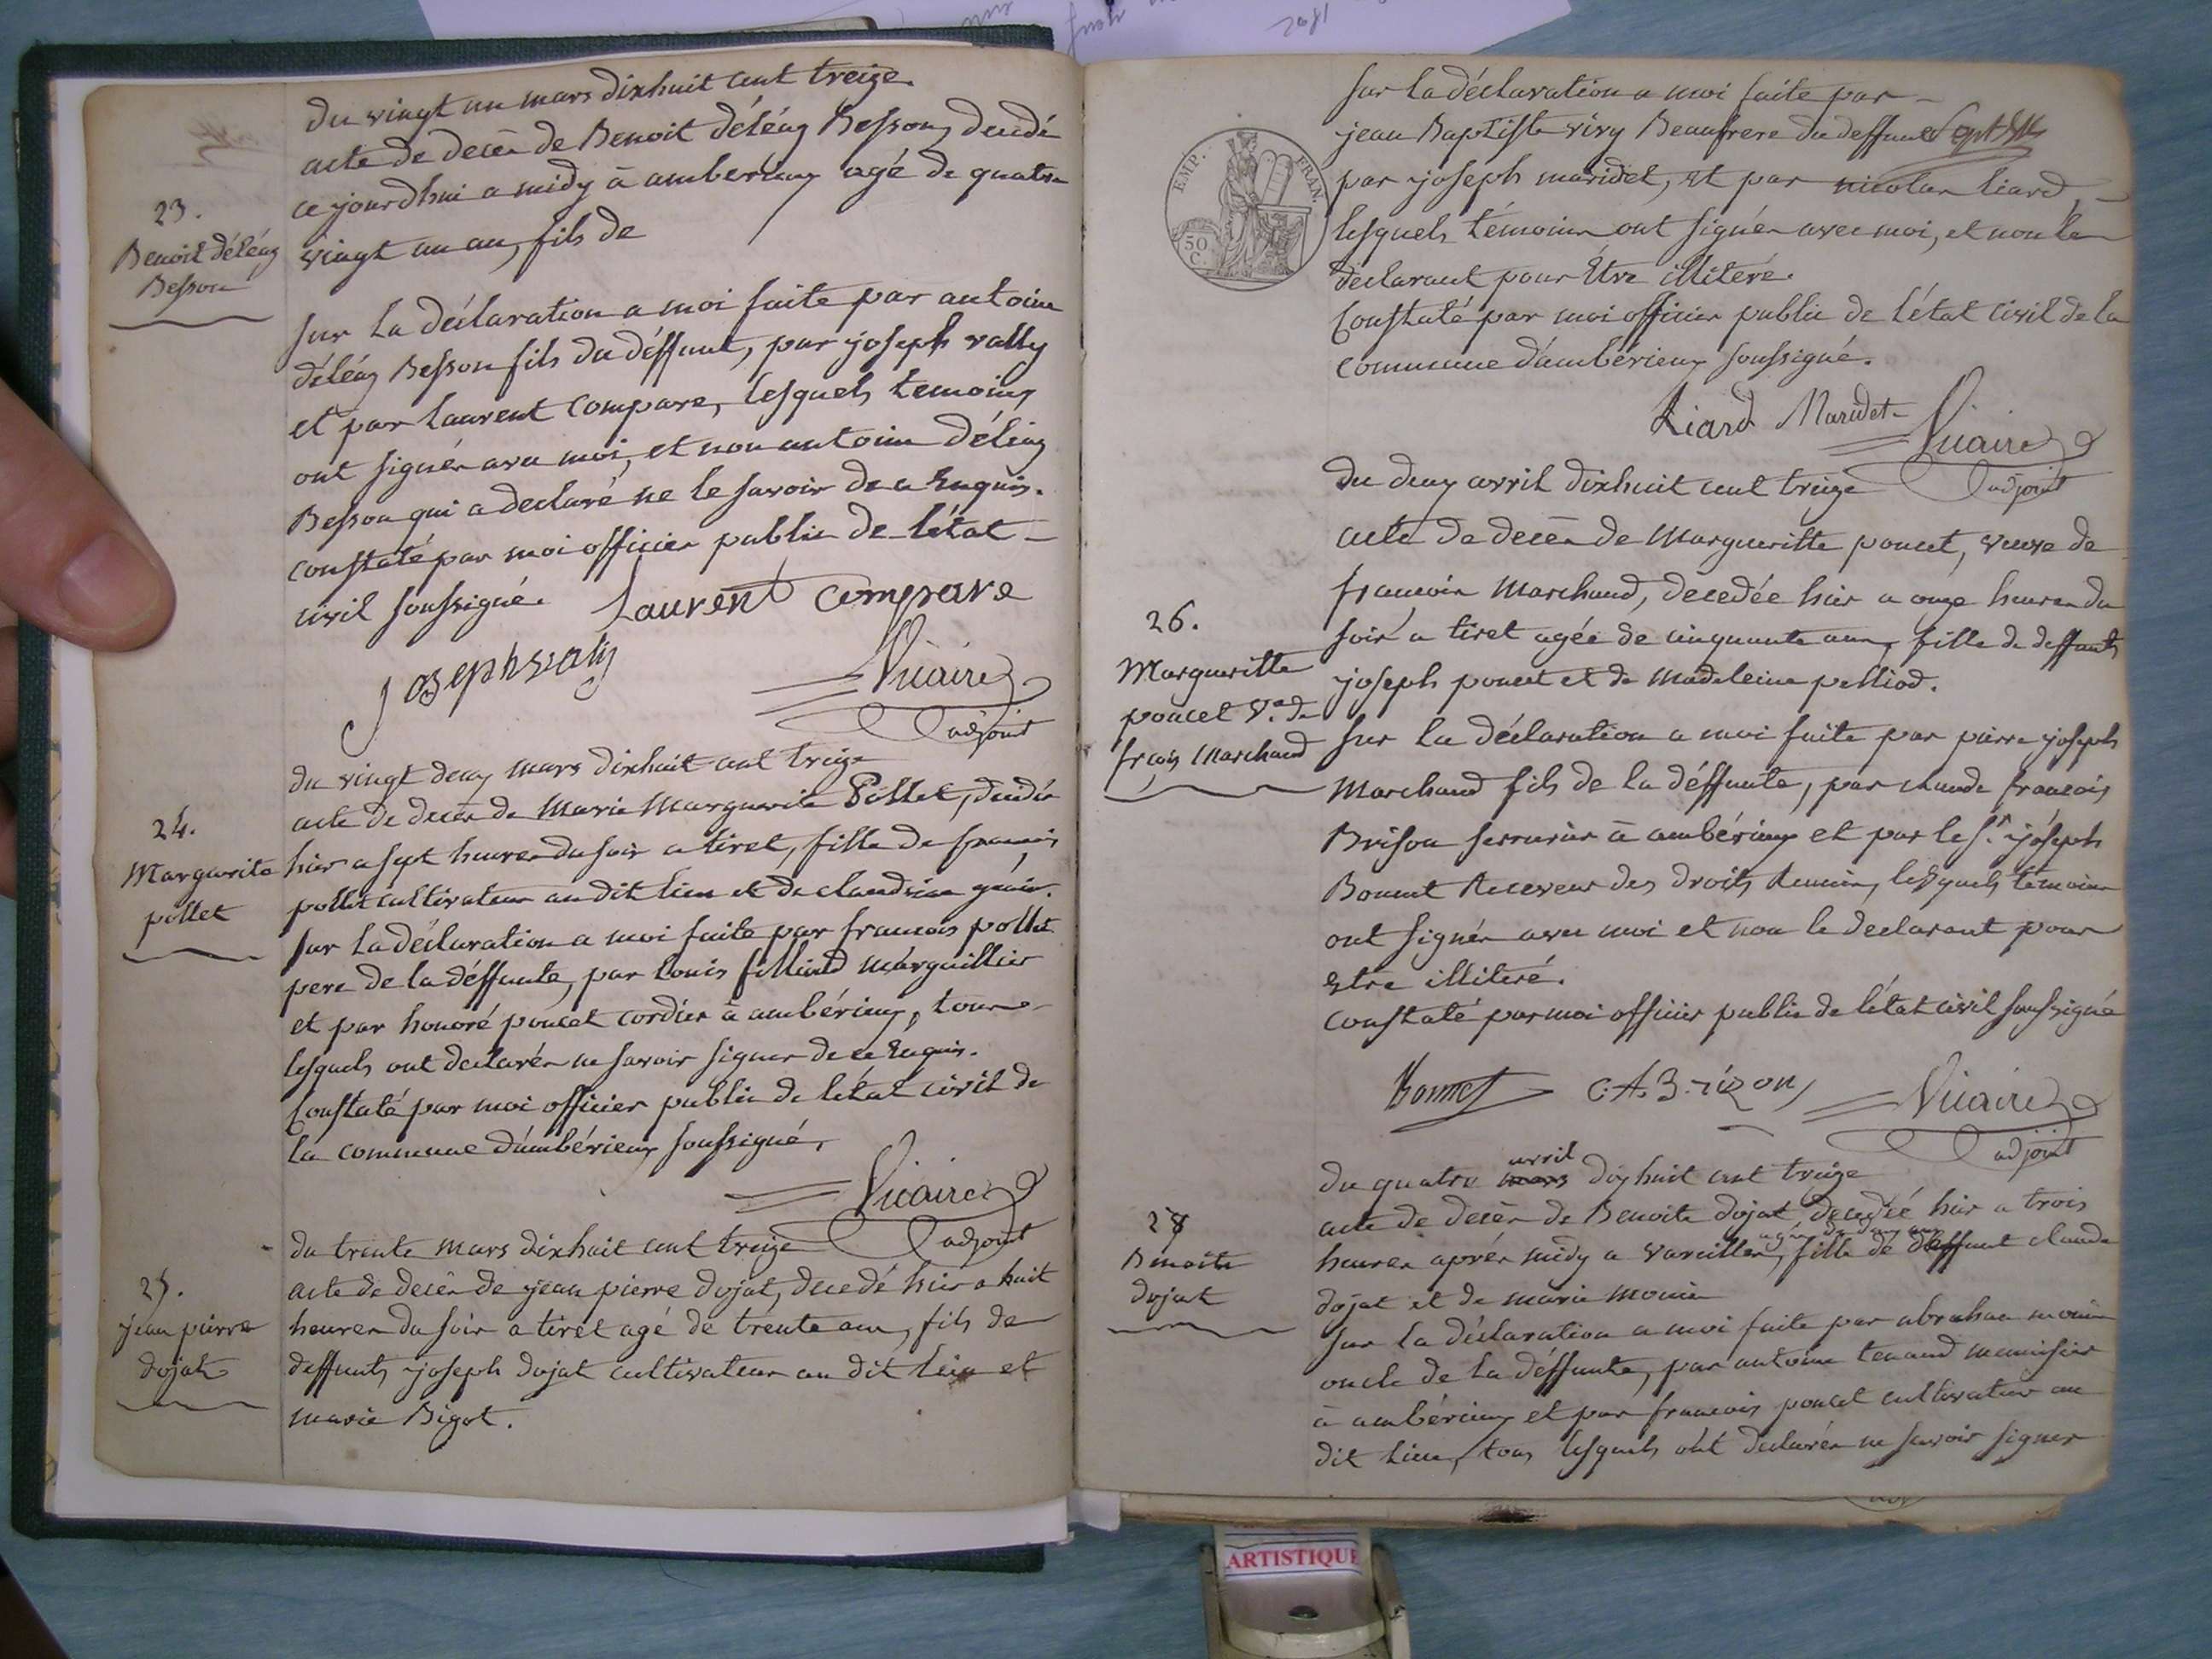 du vingt un mars dixhuit cent treize.
acte de decès de Benoit déléaz Besson, decedé
ce jourdhui a midy à ambérieux agé de quatre
vingt un an, fils de
23.
Benoit déléaz
Besson
sur la déclaration a moi faite par antoine
déléaz Besson fils du déffunt, par joseph vally
et par laurent compare, lesquels temoins
ont signés avec moi, et non antoine déléaz
Besson qui a declaré ne le savoir de ce Enquis.
constaté par moi officier public de l'état
civil soussigné. Laurent compare
joseph valy
Vicaire
adjoint
du vingt deux mars dixhuit cent treize
acte de decès de Marie Marguerite Pollet, decedée
24.
Marguerite
pollet
hier a sept heures du soir a tiret, fille de francois
pollet cultivateur au dit lieu et de claudine
sur la déclaration a moi faite par francois pollet
pere de la déffunte, par louis filliard marguillier
et par honoré poncet cordier à ambérieux, tous
lesquels ont declarés ne savoir signer de ce Enquis.
constaté par moi officier public de létat civil de
la commune d'ambérieux soussigné,
Vicaire
adjoint
du trente mars dixhuit cent treize
acte de decès de jean pierre dojat, decedé hier a huit
25.
jean pierre
dojat
heures du soir a tiret agé de trente ans, fils de
deffunts joseph dojat cultivateur au dit lieu et
marie Bigot.
sur la déclaration a moi faite par
jean Baptiste vivy Beaufrere du deffunt
par joseph maridet, et par nicolas liard,
lesquels témoins ont signés avec moi, et non le
déclarant pour Être illiteré.
constaté par moi officier public de l'état civil de la
commune d'ambérieux soussigné.
EMP. FRAN.
50
C.
Liard Maridet
Vicaire
adjoint
du deux avril dixhuit cent treize
acte de decès de Margueritte poncet, veuve de
francois Marchand, decedée hier a onze heures du
soir a tiret agée de cinquante ans, fille de deffunts
joseph poncet et de Madeleine pelliod.
26.
Margueritte
poncet Ve. de
frçois Marchand
sur la déclaration a moi faite par pierre joseph
Marchand fils de la déffunte, par claude francois
Brison serrurier à ambérieux et par le Sr. jóseph
Bonnet Receveur des droits Reunis, lesquels témoins
ont signés avec moi et non le declarant pour
Etre illiteré.
constaté par moi officier public de létat civil soussigné
Bonnet C. A. Brizon
Vicaire
adjoint
du quatre mars avril dixhuit cent treize
acte de decès de Benoite dojat decedée hier a trois
heures aprés midy a vareilles, agée de deux ans fille de deffunt claude
dojat et de marie monin
28
Benoite
dojat
sur la déclaration a moi faite par abraham monin
oncle de la déffunte, par antoine tenand menuisier
à ambérieux et par francois poncet cultivateur au
dit lieu, tous lesquels ont declarés ne savoir signer
ARTISTIQUE